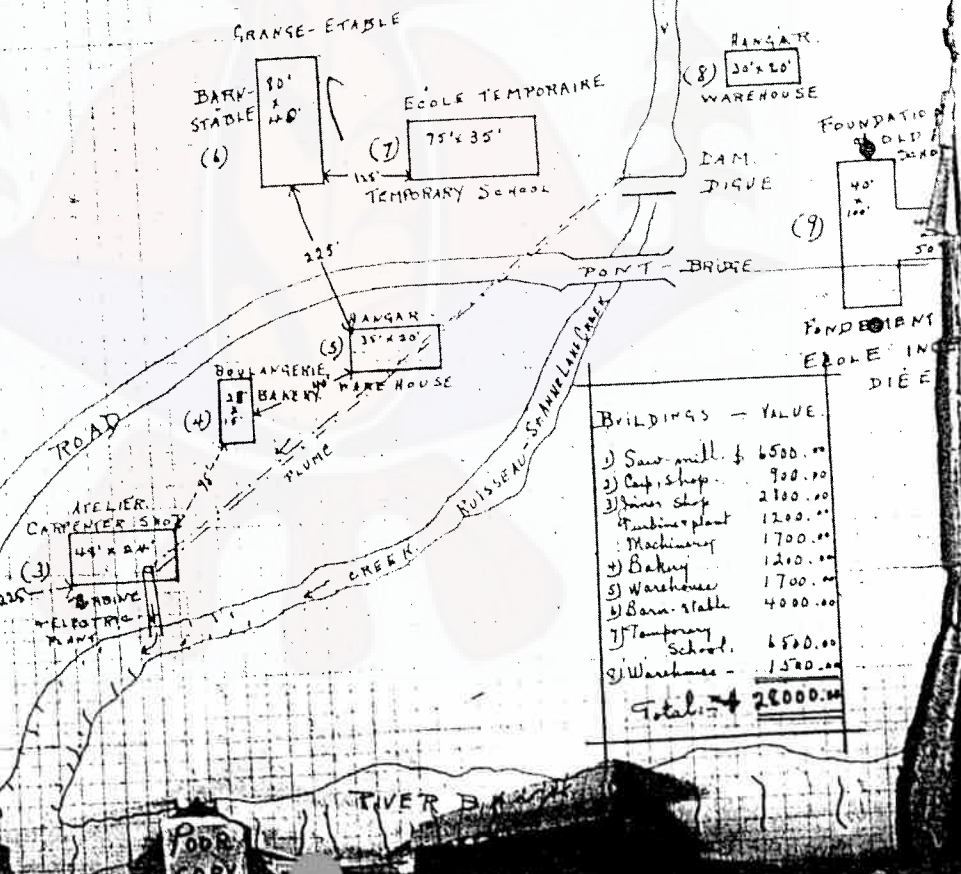 GRANGE-ETABLE
BARN-
STABLE
(6)
80'
x
40'
ECOLE TEMPORAIRE
(7)
75' x 35'
125'
TEMPORARY SCHOOL
HANGAR.
(8)
30' x 20'
WAREHOUSE
DAM.
DIGUE
OLD
(9)
40'
x
100'
50'
225'
PONT - BRIDGE
HANGAR
(5)
35' x 20'
WAREHOUSE
BOULANGERIE,
BAKERY
40'
(4)
28'
x
15'
ROAD
FLUME
95'
RUISSEAU-St ANNE LAKE CREEK
CREEK
ATELIER.
CARPENTER SHOP
48' x 24'
(3)
225'
TURBINE
ELECTRIC-
PLANT
ECOLE IN
DIÉE
BUILDINGS — VALUE.
1) Saw-mill. $ 6500.00
2) Carp. Shop. 900.00
3) Joiner Shop 2800.00
Turbine + plant 1200.00
Machinery 1700.00
4) Bakery 1200.00
5) Warehouse 1700.00
6) Barn-stable 4000.00
7) Temporary
School. 6500.00
8) Warehouse - 1500.00
Total:- $ 28000.00
RIVER BANK
POOR
COPY